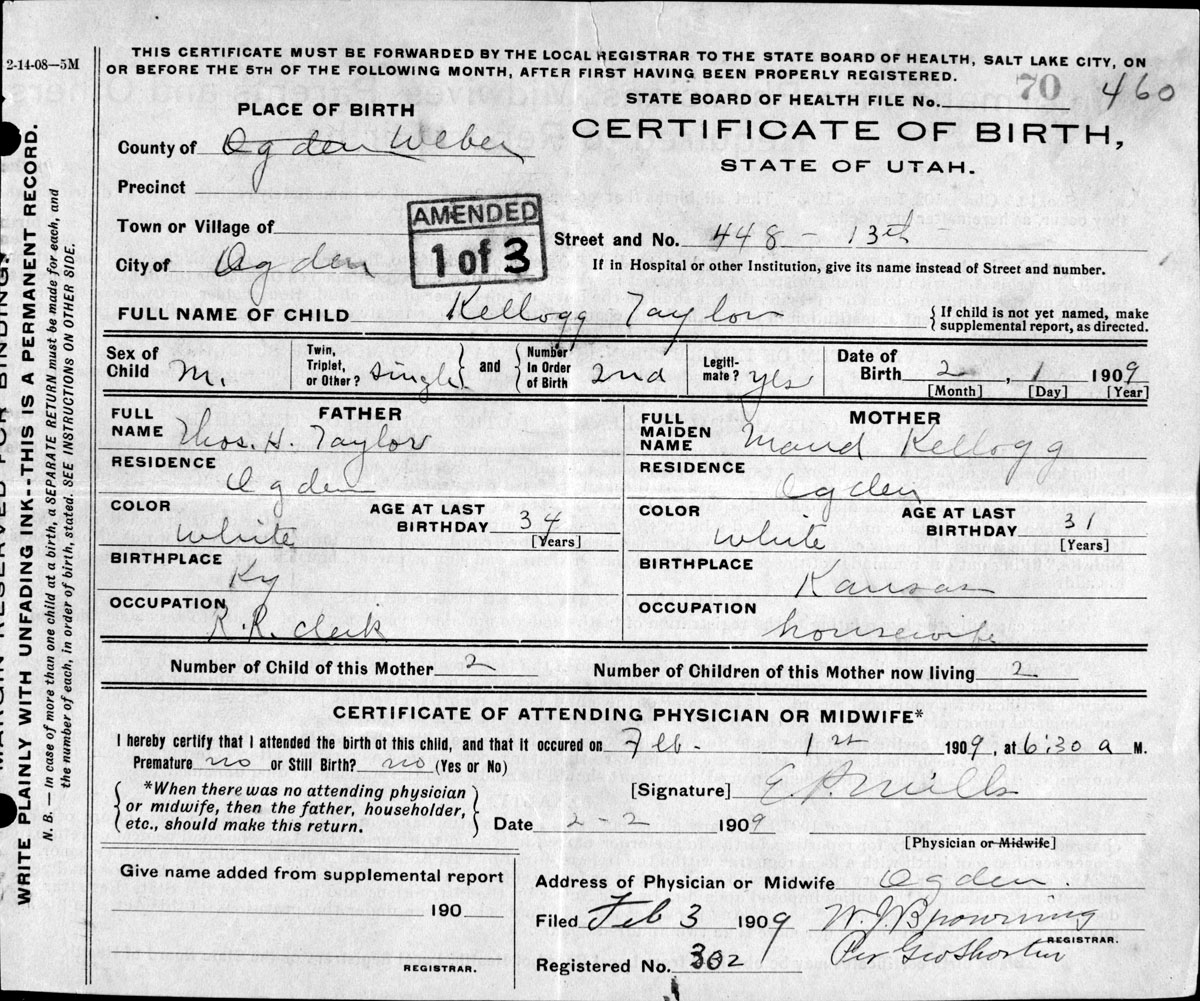 2-14-08—5M
THIS CERTIFICATE MUST BE FORWARDED BY THE LOCAL REGISTRAR TO THE STATE BOARD OF HEALTH, SALT LAKE CITY, ON
OR BEFORE THE 5TH OF THE FOLLOWING MONTH, AFTER FIRST HAVING BEEN PROPERLY REGISTERED.
STATE BOARD OF HEALTH FILE No. 70 460
PLACE OF BIRTH
CERTIFICATE OF BIRTH,
STATE OF UTAH.
County of Ogden Weber
Precinct
Town or Village of
City of Ogden
AMENDED
1 of 3
Street and No. 448 - 13th -
If in Hospital or other Institution, give its name instead of Street and number.
FULL NAME OF CHILD Kellogg Taylor
{ If child is not yet named, make
supplemental report, as directed.
Sex of Child M.
Twin, Triplet, or Other? Single
and
Number In Order of Birth 2nd
Legiti-mate? yes
Date of Birth 2, 1 1909
[Month] [Day] [Year]
FATHER
FULL NAME Thos. H. Taylor
RESIDENCE Ogden
COLOR White
AGE AT LAST BIRTHDAY 34
[Years]
BIRTHPLACE Ky
OCCUPATION R.R. clerk
MOTHER
FULL MAIDEN NAME Maud Kellogg
RESIDENCE Ogden
COLOR White
AGE AT LAST BIRTHDAY 31
[Years]
BIRTHPLACE Kansas
OCCUPATION housewife
Number of Child of this Mother 2
Number of Children of this Mother now living 2
CERTIFICATE OF ATTENDING PHYSICIAN OR MIDWIFE*
I hereby certify that I attended the birth of this child, and that it occured on Feb. 1st 1909, at 6:30 a M.
Premature no or Still Birth? no (Yes or No)
*When there was no attending physician
or midwife, then the father, householder,
etc., should make this return.
[Signature] E. P. Mills
Date 2-2 1909
[Physician or Midwife]
Give name added from supplemental report
190
REGISTRAR.
Address of Physician or Midwife Ogden.
Filed Feb 3 1909 W. J. Browning
REGISTRAR.
Registered No. 302 Per Geo Shorten
MARGIN RESERVED FOR BINDING.
WRITE PLAINLY WITH UNFADING INK--THIS IS A PERMANENT RECORD.
N. B. — In case of more than one child at a birth, a SEPARATE RETURN must be made for each, and
the number of each, in order of birth, stated. SEE INSTRUCTIONS ON OTHER SIDE.